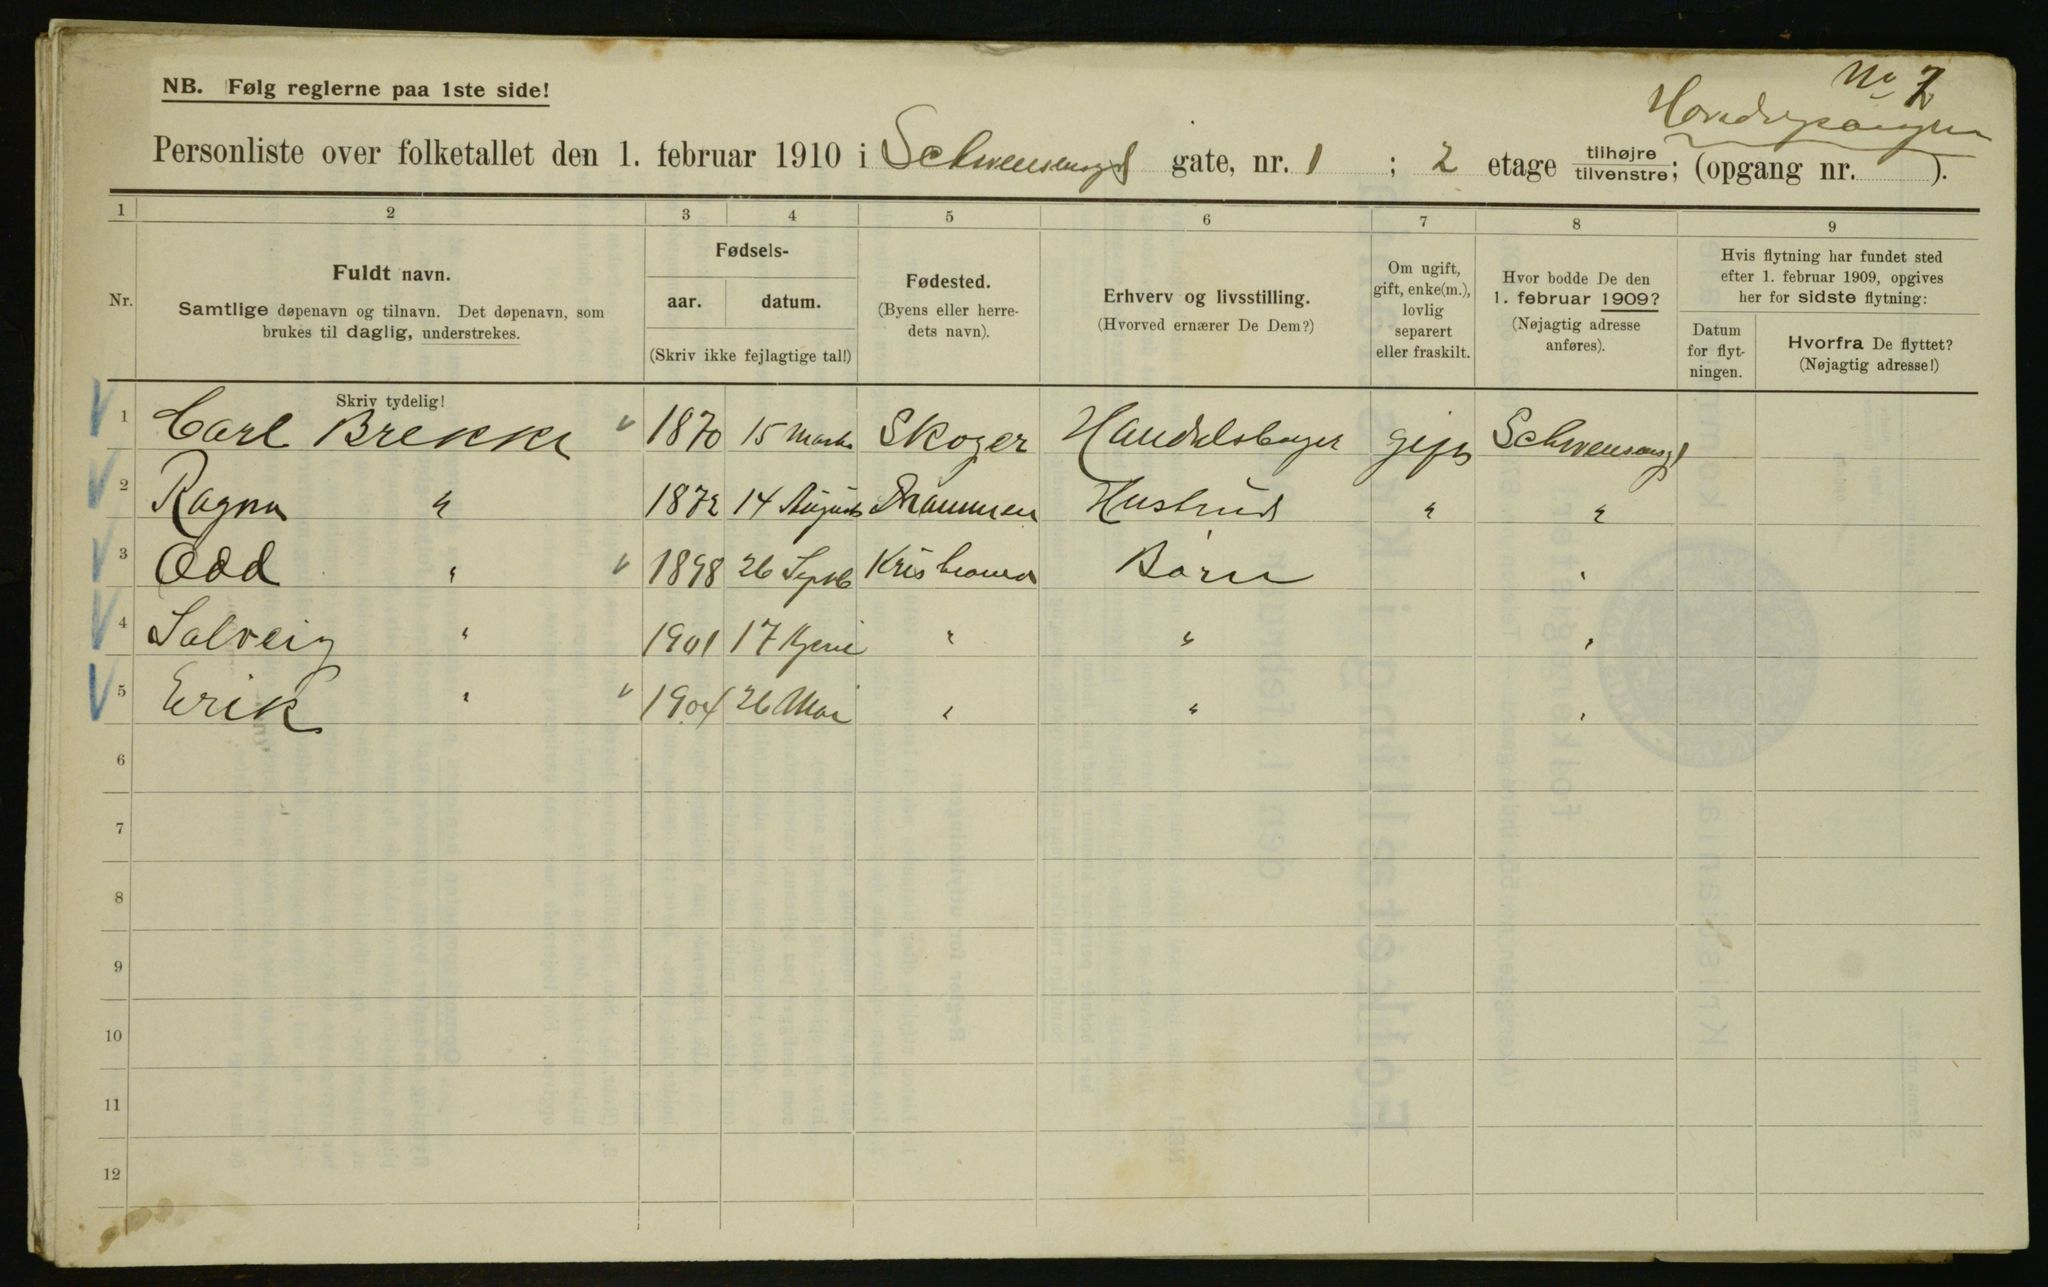 No 7
NB. Følg reglerne paa 1ste side!
Personliste over folketallet den 1. februar 1910 i Schwensensgt gate, nr. 1 ; 2 etage tilhøjre tilvenstre; (opgang nr. ).
1 2 3 4 5 6 7 8 9
Nr.
Fuldt navn.
Samtlige døpenavn og tilnavn. Det døpenavn, som
brukes til daglig, understrekes.
Fødsels-
aar. datum.
(Skriv ikke fejlagtige tal!)
Fødested.
(Byens eller herre-
dets navn).
Erhverv og livsstilling.
(Hvorved ernærer De Dem?)
Om ugift,
gift, enke(m.),
lovlig
separert
eller fraskilt.
Hvor bodde De den
1. februar 1909?
(Nøjagtig adresse
anføres).
Hvis flytning har fundet sted
efter 1. februar 1909, opgives
her for sidste flytning:
Datum
for flyt-
ningen.
Hvorfra De flyttet?
(Nøjagtig adresse!)
Skriv tydelig!
1 Carl Brekke 1870 15 Marts Skoger Handelsborger gift Schwensensgt 1
2 Ragna " 1872 14 August Drammen Hustrud " "
3 Odd " 1898 26 Septb Kristiania Barn "
4 Solveig " 1901 17 " " "
5 Erik " 1904 26 Mai " " "
6
7
8
9
10
11
12